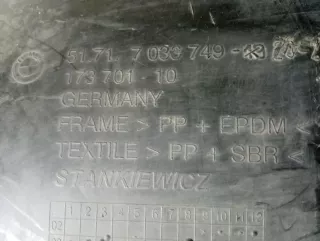 51.71 7 033 749-
173 701-10
GERMANY
FRAME > PP + EPDM <
TEXTILE > PP + SBR <
STANKIEWICZ
1 2 3 4 5 6 7 8 9 10 16
02